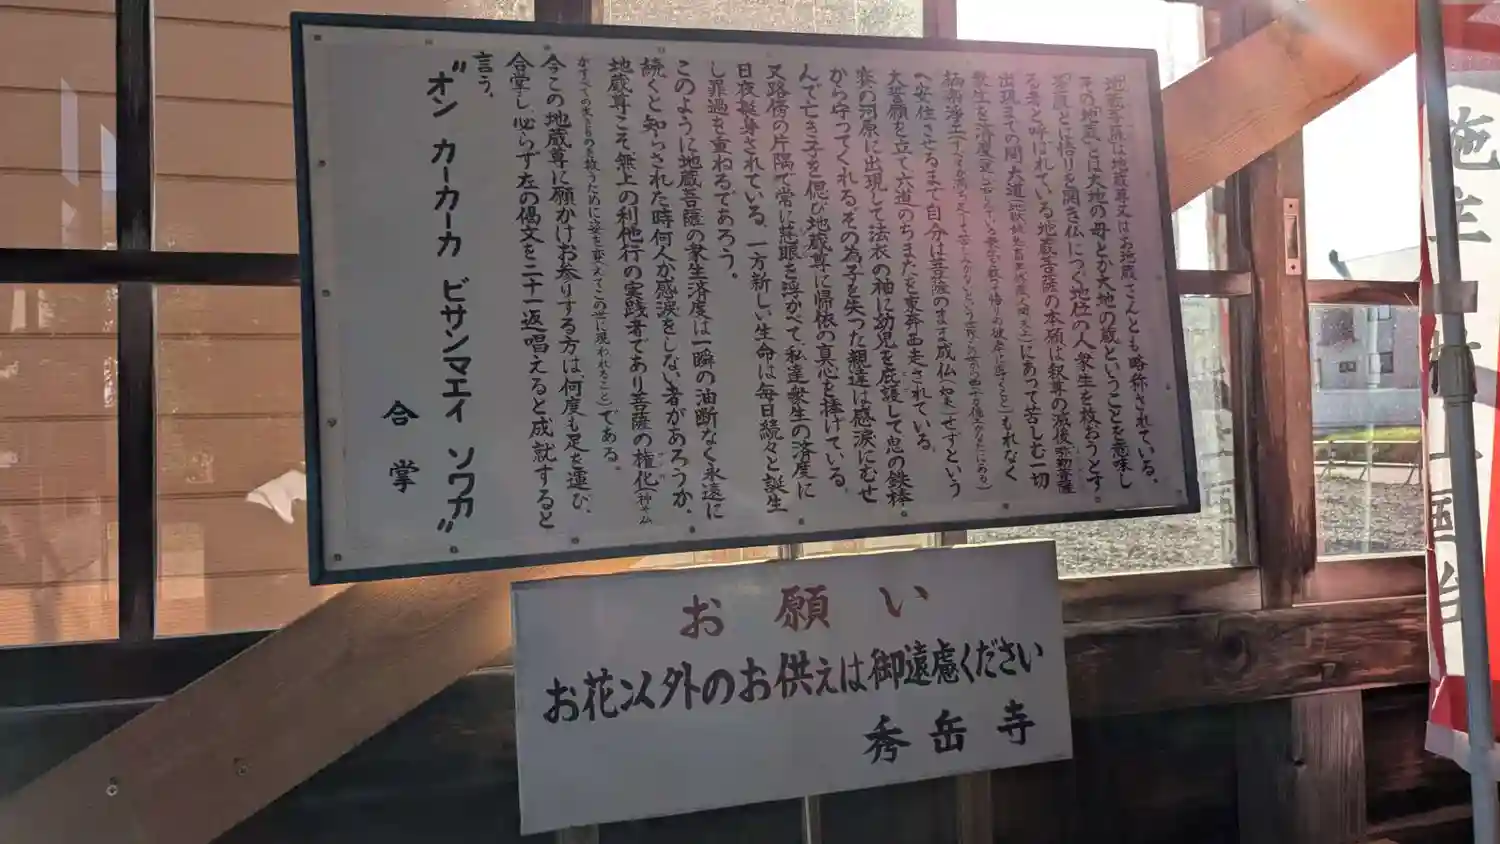 地蔵菩薩は地蔵尊又はお地蔵さんとも略称されている。
その地蔵とは大地の母とか大地の蔵ということを意味し
菩薩とは悟りを開き仏につぐ地位の人、衆生を救おうとす
る者と呼ばれている地蔵菩薩の本願は釈尊の滅後、弥勒菩薩
出現までの間六道(地獄 餓鬼 畜生 修羅 人間 天上)にあって苦しむ一切
衆生を済度(迷い苦しんでいる衆生を救って悟りの彼岸に導くこと)もれなく
極楽浄土
へ安住させるまで自分は菩薩のまま成仏(如来)せずという
大誓願を立て六道のちまたを東奔西走されている。
賽の河原に出現して法衣の袖に幼児を庇護して悪の鉄棒
から守ってくれるその為子を失った親達は感涙にむせ
んで亡き子を偲び地蔵尊に帰依の真心を捧げている。
又路傍の片隅で常に慈眼を浮かべて私達衆生の済度に
日夜挺身されている。一方新しい生命は毎日続々と誕生
し罪過を重ねるであろう。
このように地蔵菩薩の衆生済度は一瞬の油断なく永遠に
続くと知らされた時何人か感涙をしない者があろうか。
地蔵尊こそ無上の利他行の実践者であり菩薩の権化(神や仏
がすべての生きものを救うために姿を変えてこの世に現われること)である。
今この地蔵尊に願かけお参りする方は、何度も足を運び、
合掌し、必らず左の偈文を二十一返唱えると成就すると
言う。
"オン カーカーカ ビサンマエイ ソワカ"
合掌
お願い
お花以外のお供えは御遠慮ください
秀岳寺
施主